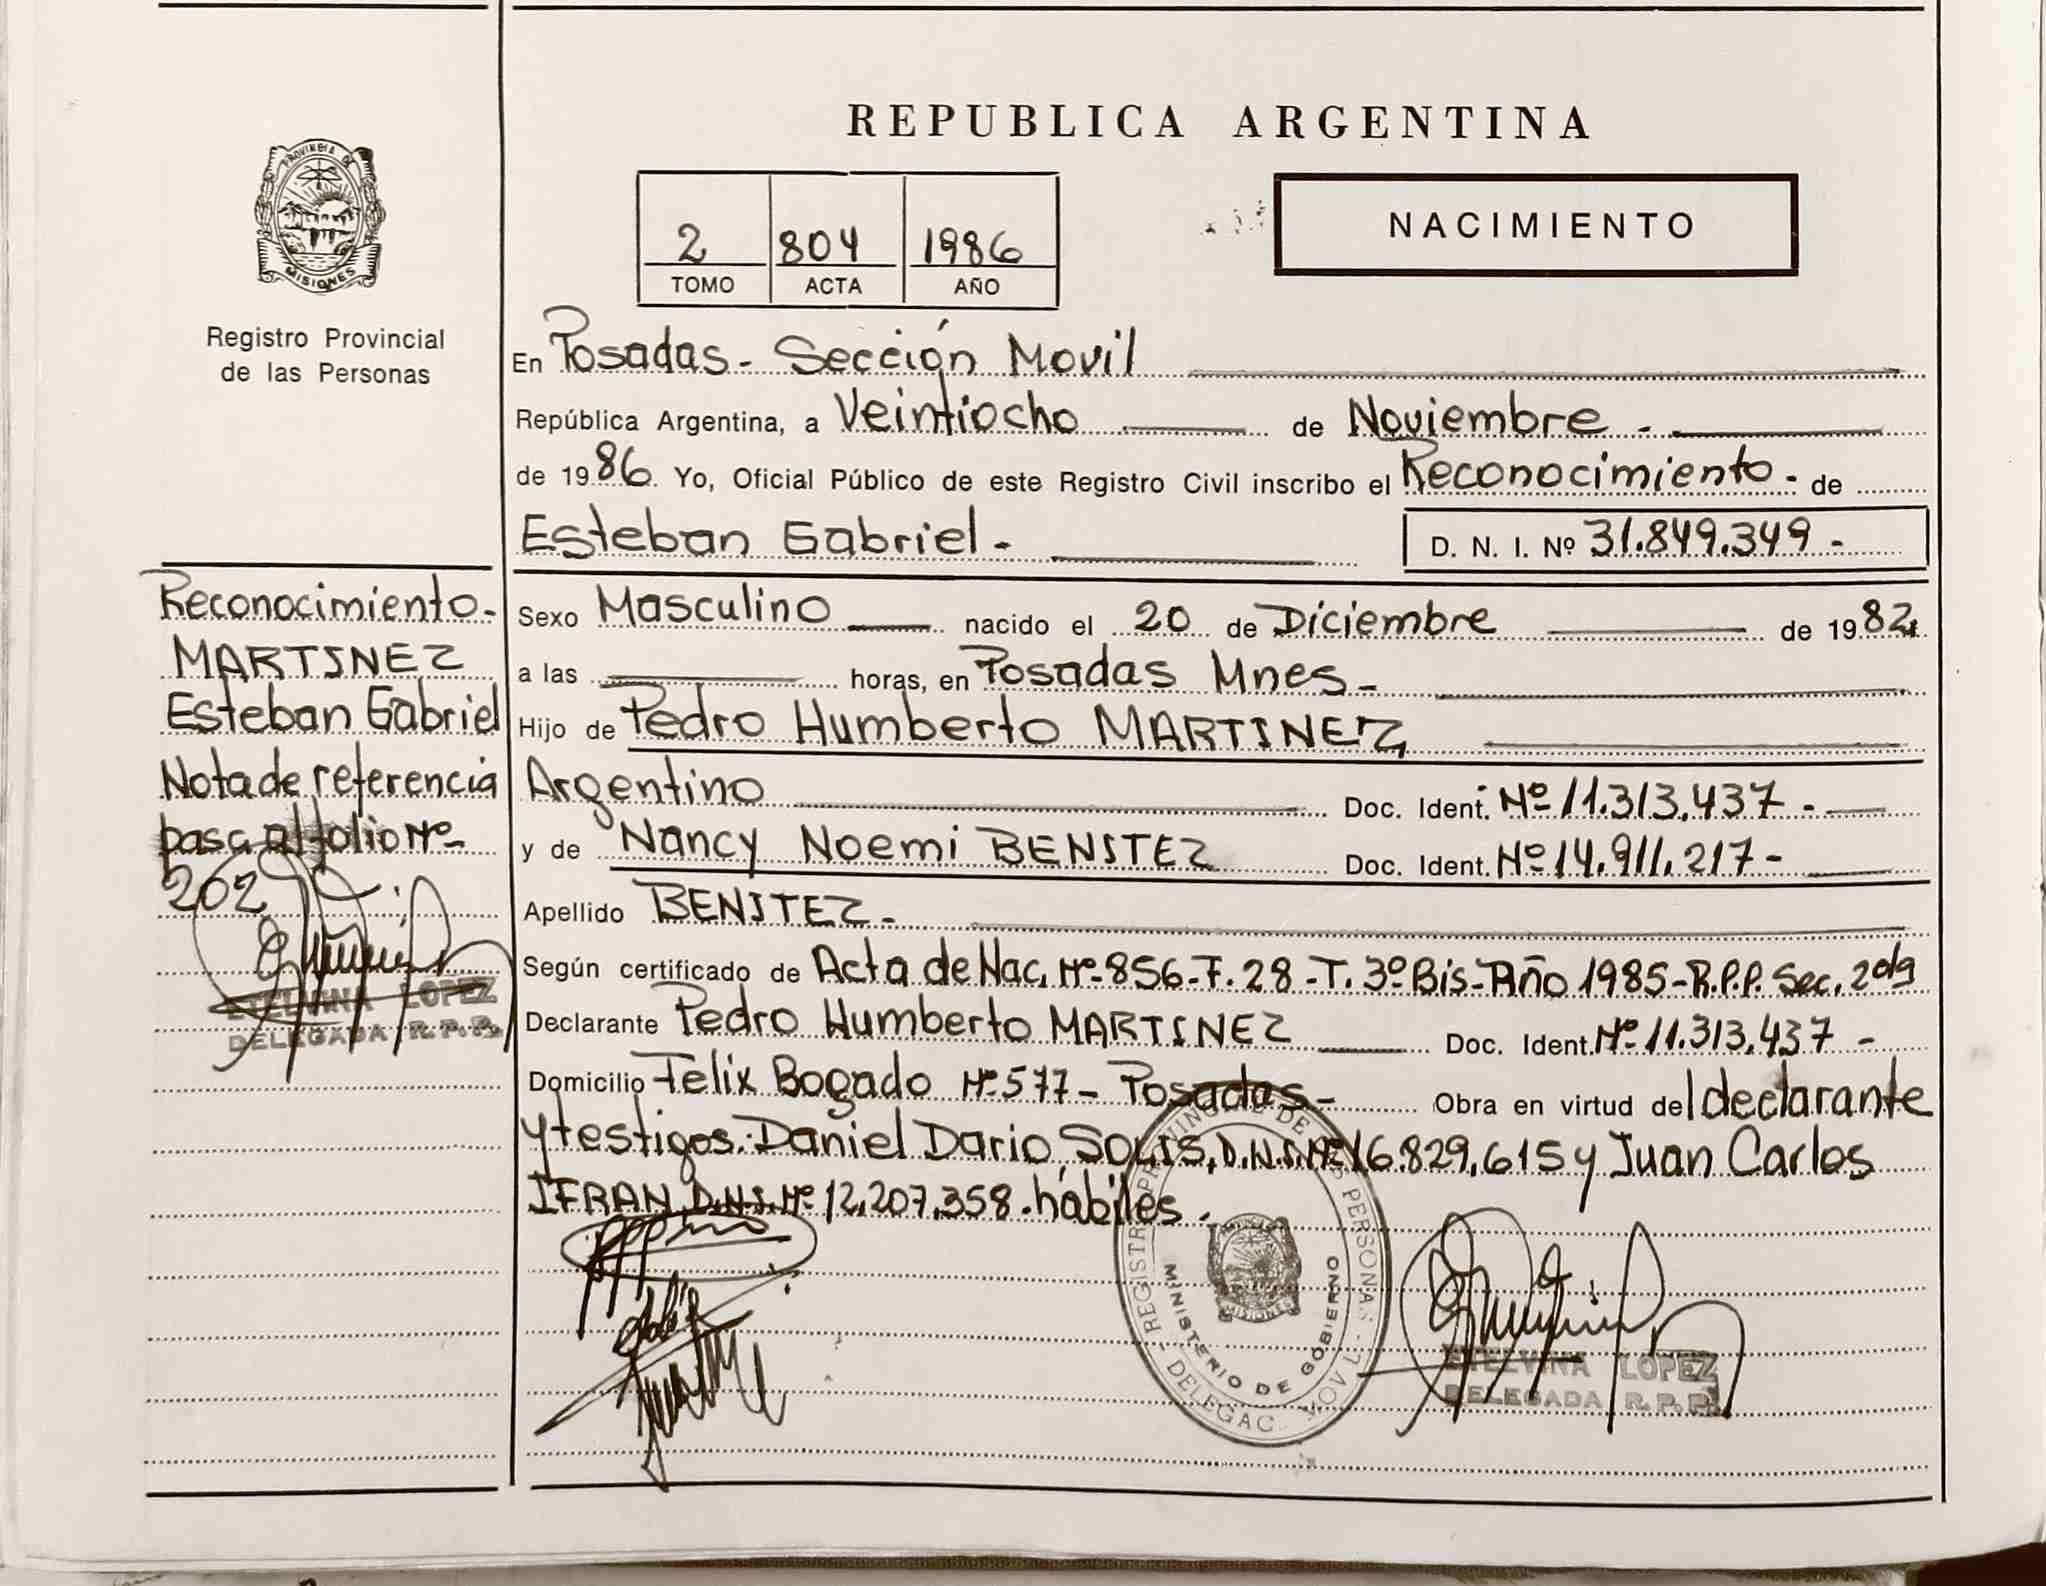 REPUBLICA ARGENTINA
PROVINCIA DE
MISIONES
Registro Provincial
de las Personas
2 804 1986
TOMO ACTA AÑO
NACIMIENTO
En Posadas - Sección Movil
República Argentina, a Veintiocho de Noviembre -
de 1986. Yo, Oficial Público de este Registro Civil inscribo el Reconocimiento - de
Esteban Gabriel - D. N. I. Nº 31.849.349 -
Reconocimiento -
MARTINEZ
Esteban Gabriel
Nota de referencia
pasa al folio Nº-
202
ETELVINA LOPEZ
DELEGADA R.P.P.
Sexo Masculino nacido el 20 de Diciembre de 1982
a las horas, en Posadas Mnes -
Hijo de Pedro Humberto MARTINEZ
Argentino Doc. Ident. Nº 11.313.437 -
y de Nancy Noemi BENITEZ Doc. Ident. Nº 14.911.217 -
Apellido BENITEZ -
Según certificado de Acta de Nac. Nº-856-F.28-T.3º Bis-Año 1985-R.P.P. Sec. 2da
Declarante Pedro Humberto MARTINEZ Doc. Ident. Nº 11.313.437 -
Domicilio Felix Bogado Nº 577 - Posadas - Obra en virtud del declarante
y testigos: Daniel Dario SOLIS, D.N.I. Nº 16.829.615 y Juan Carlos
IFRAN D.N.I. Nº 12.207.358. hábiles.
REGISTRO PROVINCIAL DE LAS PERSONAS - DELEGAC. MOVIL
MINISTERIO DE GOBIERNO
MISIONES
ETELVINA LOPEZ
DELEGADA R.P.P.